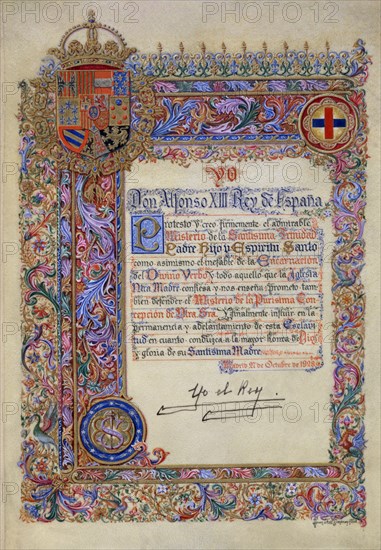 Yo
Don Alfonso XIII Rey de España
Protesto y creo firmemente el admirable
Misterio de la Santisima Trinidad
Padre Hijo y Espiritu Santo
como asimismo el inefable de la Encarnación
del Divino Verbo y todo aquello que la Iglesia
Ntra Madre confiesa y nos enseña; prometo tam
bien defender el Misterio de la Purisima Con
cepción de Ntra Sra. Igualmente influir en la
permanencia y adelantamiento de esta Esclavi
tud en cuanto conduzca a la mayor Honra de Dios
y gloria de su Santisima Madre
Madrid 12 de Octubre de 1928
Yo el Rey.
PHOTO12